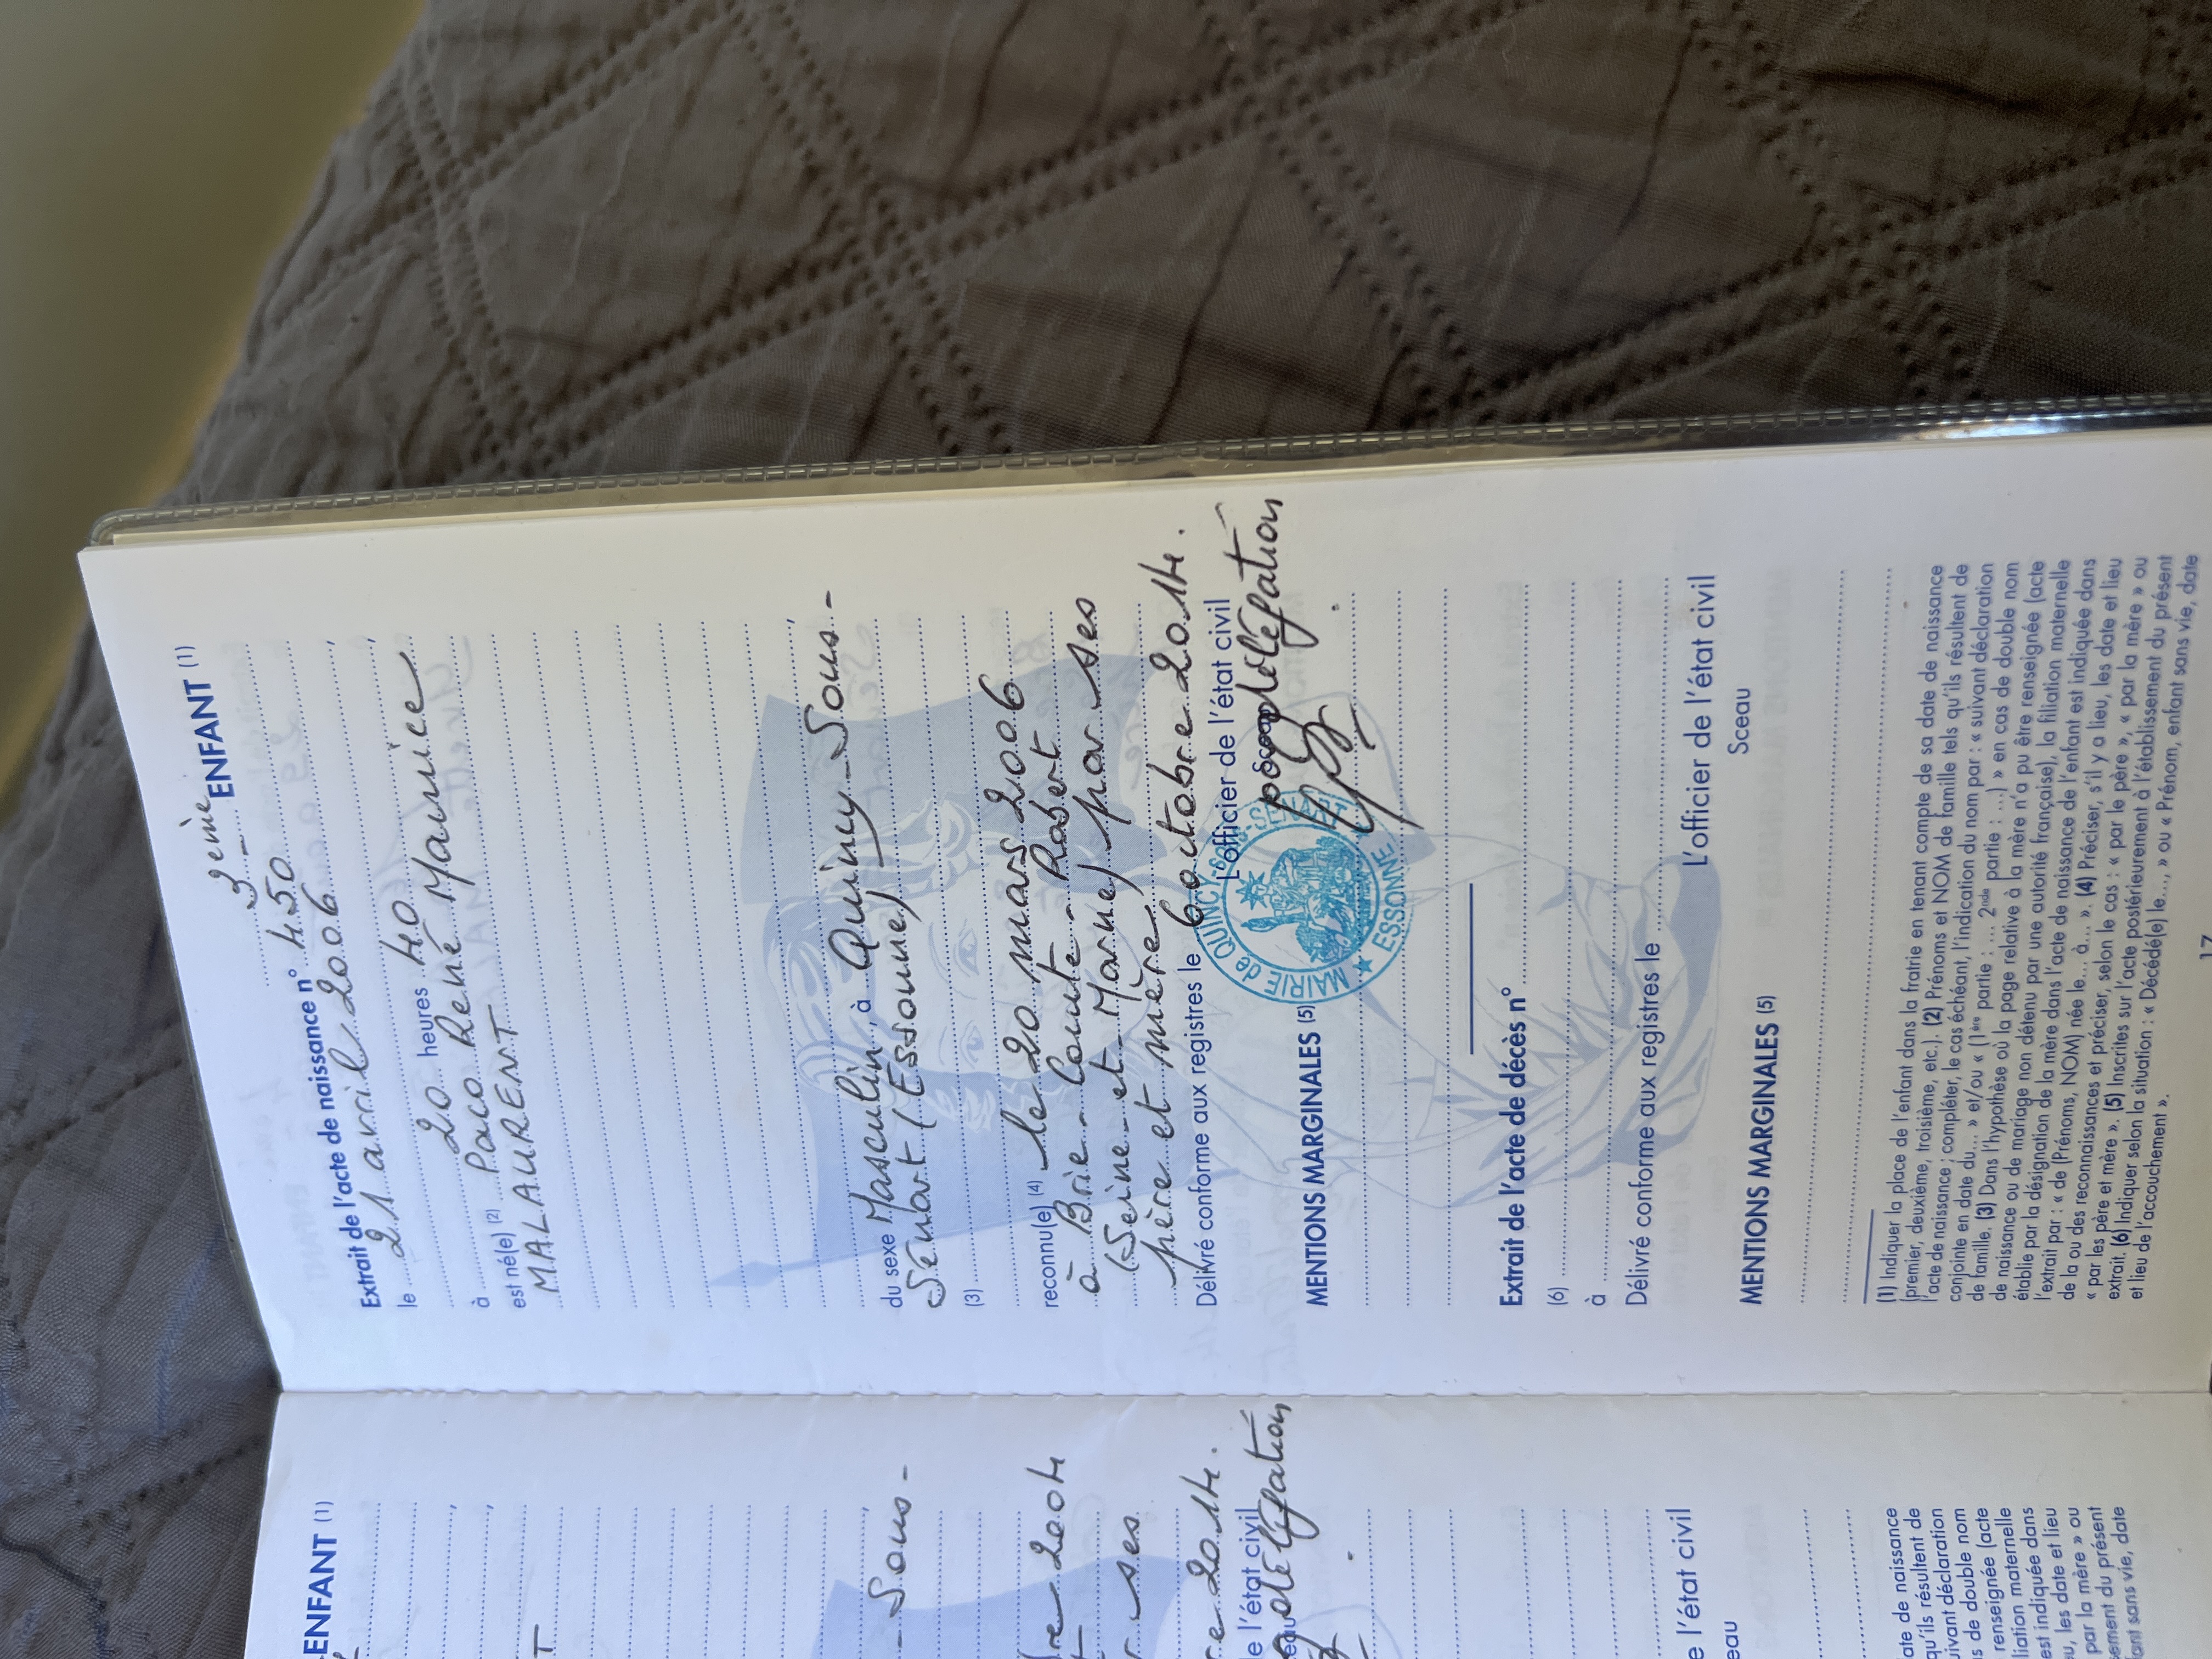 3ème ENFANT (1)
Extrait de l'acte de naissance n° 450
le 21 avril 2006,
à 20 heures 40,
est né(e) (2) Paco René Maurice
MALAURENT
du sexe Masculin, à Quincy-Sous-
Sénart (Essonne)
(3)
reconnu(e) (4) le 20 mars 2006
à Brie-Comte-Robert
(Seine-et-Marne) par ses
père et mère
Délivré conforme aux registres le 6 octobre 2014.
L'officier de l'état civil
par délégation
MAIRIE de QUINCY-SOUS-SÉNART
★ ESSONNE ★
MENTIONS MARGINALES (5)
Extrait de l'acte de décès n°
(6)
à
Délivré conforme aux registres le
L'officier de l'état civil
Sceau
MENTIONS MARGINALES (5)
(1) Indiquer la place de l'enfant dans la fratrie en tenant compte de sa date de naissance
(premier, deuxième, troisième, etc.). (2) Prénoms et NOM de famille tels qu'ils résultent de
l'acte de naissance ; compléter, le cas échéant, l'indication du nom par : « suivant déclaration
conjointe en date du... » et/ou « (1ère partie : ... 2nde partie : ...) » en cas de double nom
de famille. (3) Dans l'hypothèse où la page relative à la mère n'a pu être renseignée (acte
de naissance ou de mariage non détenu par une autorité française), la filiation maternelle
établie par la désignation de la mère dans l'acte de naissance de l'enfant est indiquée dans
l'extrait par : « de (Prénoms, NOM) née le... à... ». (4) Préciser, s'il y a lieu, les date et lieu
de la ou des reconnaissances et préciser, selon le cas : « par le père », « par la mère » ou
« par les père et mère ». (5) Inscrites sur l'acte postérieurement à l'établissement du présent
extrait. (6) Indiquer selon la situation : « Décédé(e) le..., » ou « Prénom, enfant sans vie, date
et lieu de l'accouchement ».
17
ENFANT (1)
T
-Sous-
re 2004
r ses
re 2014.
e l'état civil
délégation
e l'état civil
eau
ate de naissance
qu'ils résultent de
uivant déclaration
s de double nom
renseignée (acte
liation maternelle
est indiquée dans
u, les date et lieu
par la mère » ou
sement du présent
fant sans vie, date